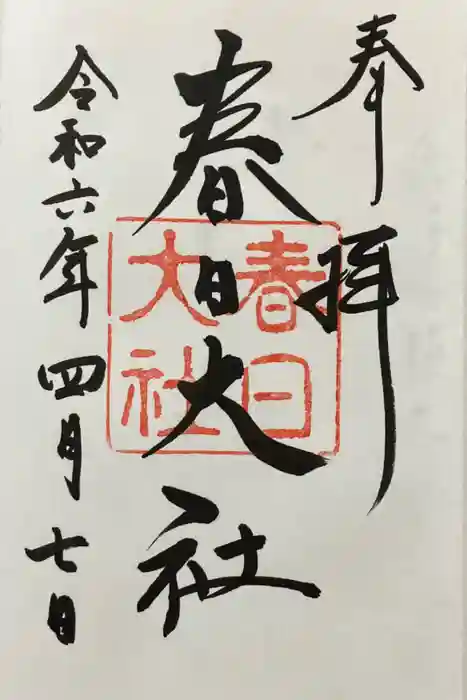 奉拝
春日大社
春日
大社
令和六年四月七日